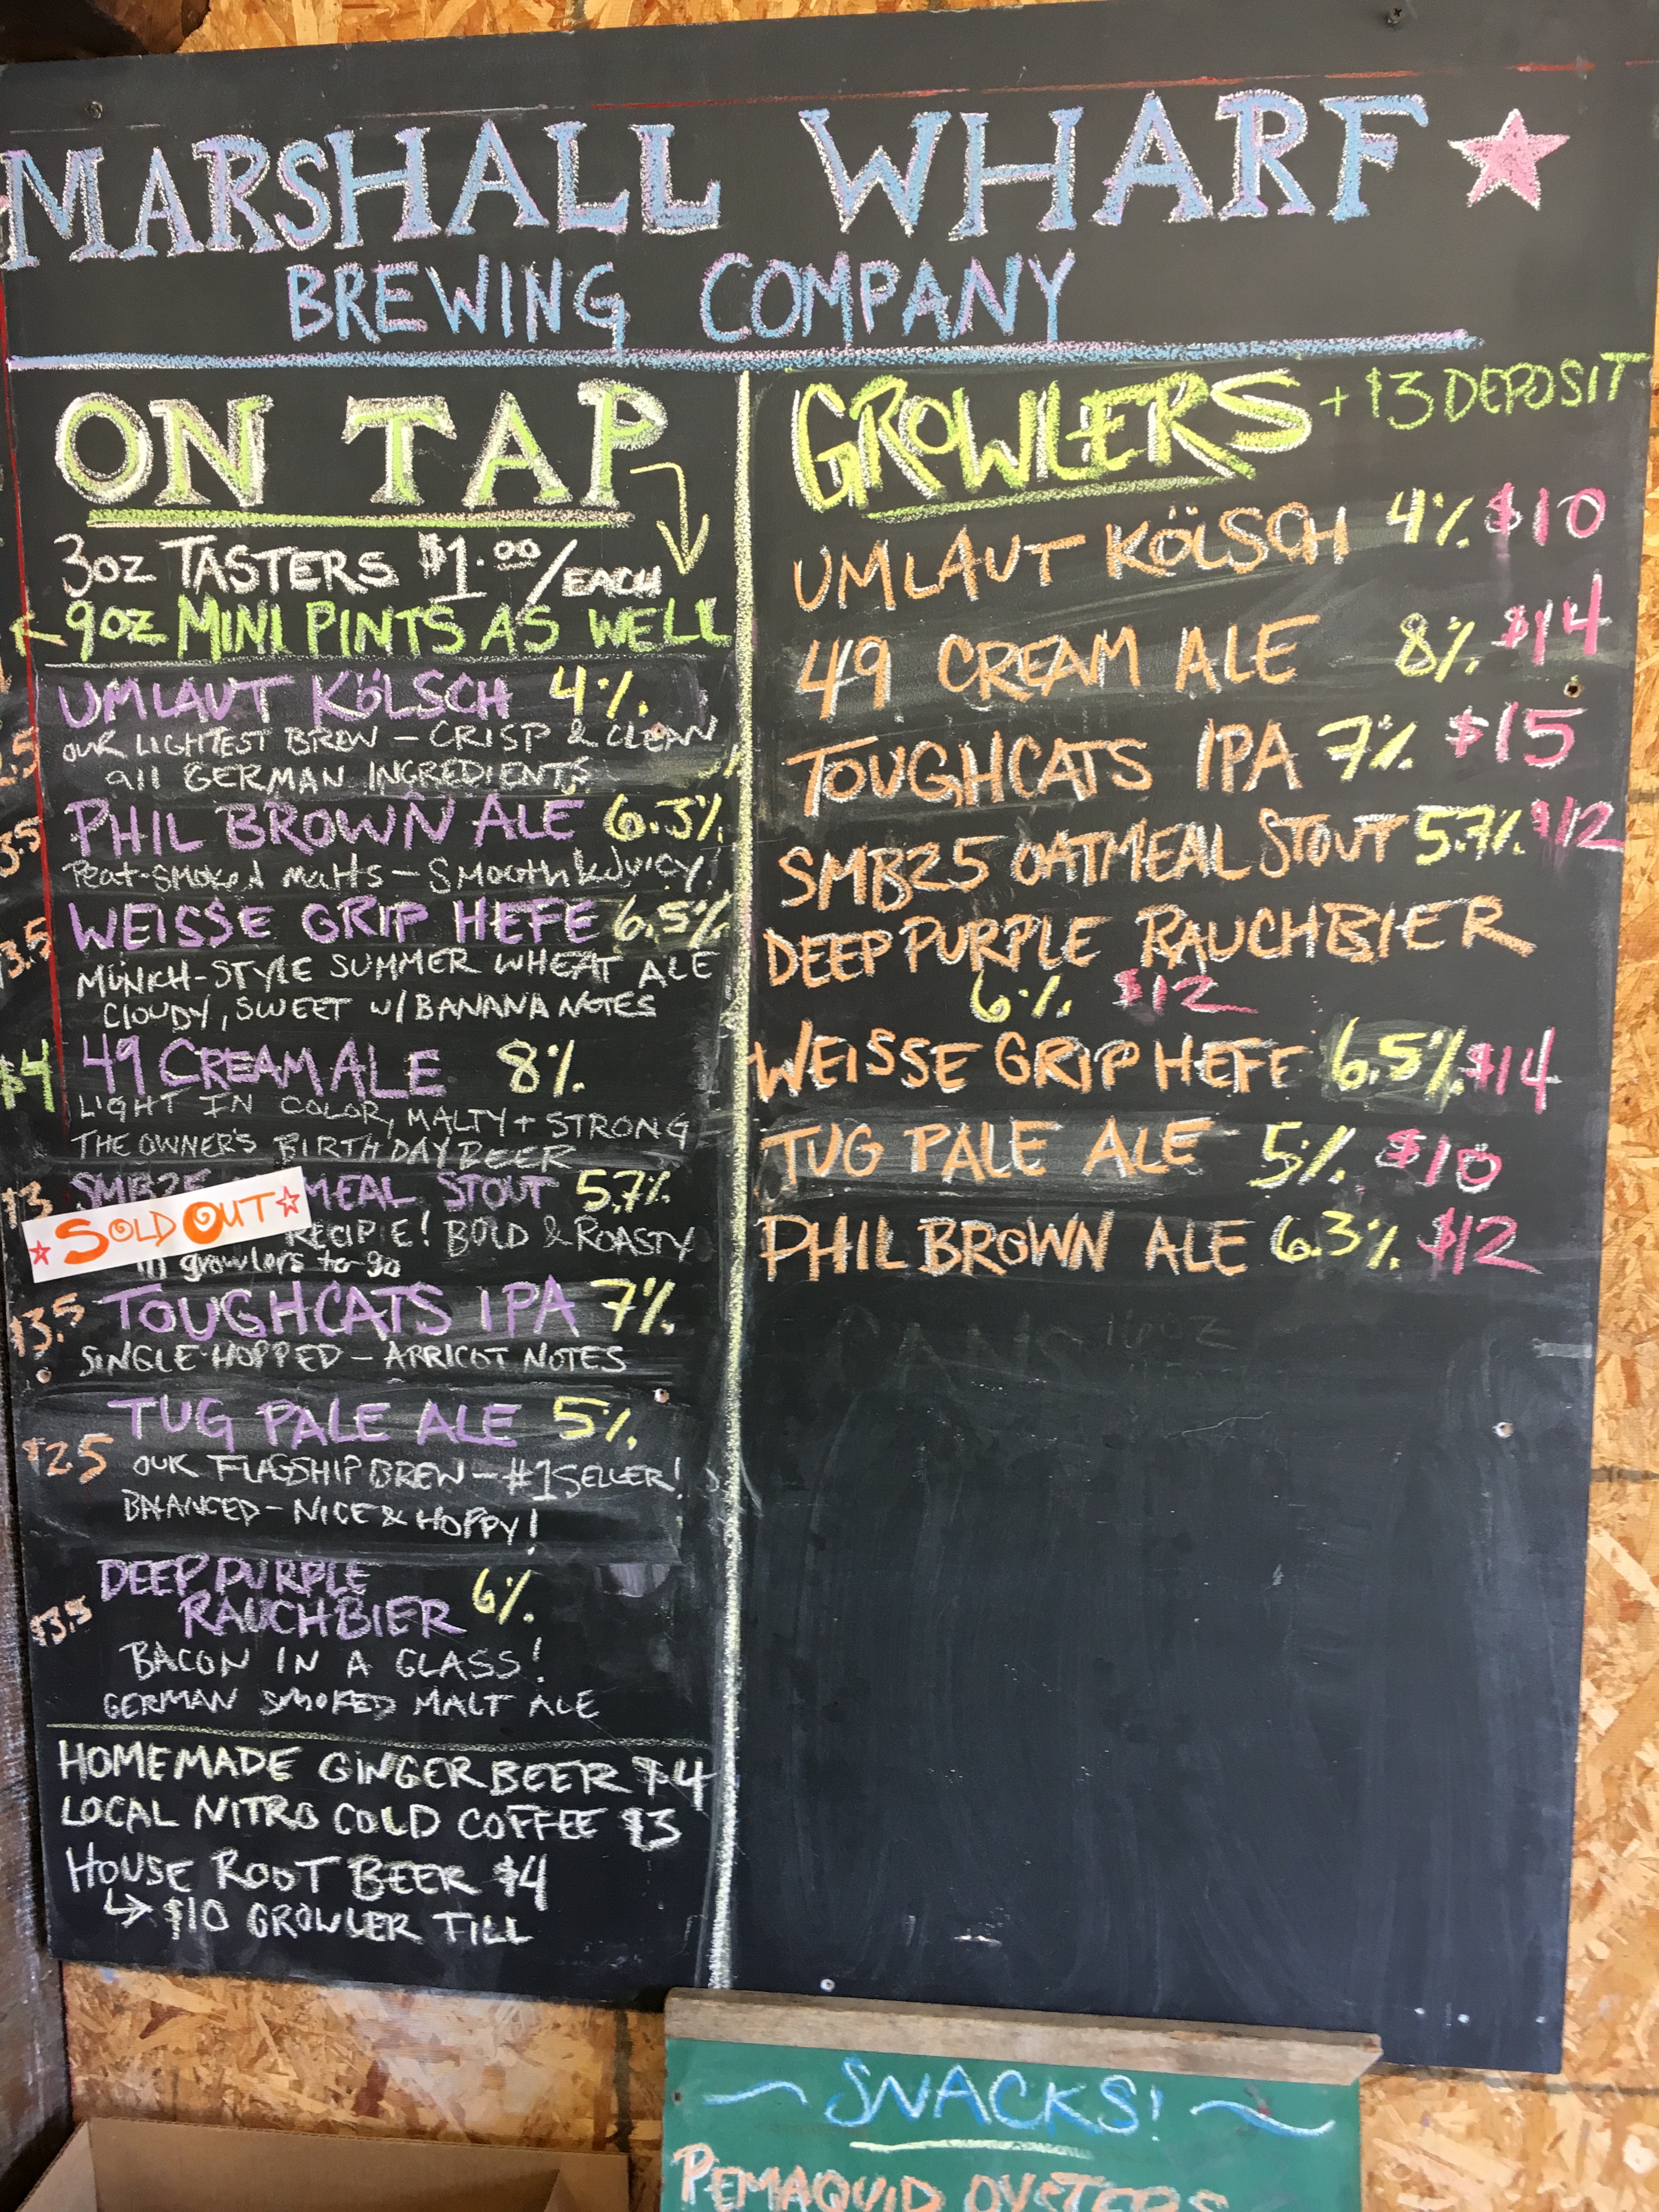 MARSHALL WHARF
BREWING COMPANY
ON TAP
3oz TASTERS $1.00/EACH
9oz MINI PINTS AS WELL
UMLAUT KÖLSCH 4%
OUR LIGHTEST BREW - CRISP & CLEAN
all GERMAN INGREDIENTS
3.5 PHIL BROWN ALE 6.3%
Peat-smoked malts - Smooth & Juicy!
3.5 WEISSE GRIP HEFE 6.5%
MUNICH-STYLE SUMMER WHEAT ALE
CLOUDY, SWEET w/ BANANA NOTES
$4 49 CREAM ALE 8%
LIGHT IN COLOR, MALTY + STRONG
THE OWNER'S BIRTHDAY BEER
$3 SMB25 MEAL STOUT 5.7%
SOLD OUT
RECIPIE! BOLD & ROASTY
in growlers to-go
$3.5 TOUGHCATS IPA 7%
SINGLE-HOPPED - APRICOT NOTES
TUG PALE ALE 5%
$2.5 OUR FLAGSHIP BREW - #1 SELLER!
BALANCED - NICE & HOPPY!
DEEP PURPLE
$3.5 RAUCHBIER 6%
BACON IN A GLASS!
GERMAN SMOKED MALT ALE
HOMEMADE GINGER BEER $4
LOCAL NITRO COLD COFFEE $3
HOUSE ROOT BEER $4
↳ $10 GROWLER FILL
GROWLERS + $3 DEPOSIT
UMLAUT KÖLSCH 4% $10
49 CREAM ALE 8% $14
TOUGHCATS IPA 7% $15
SMB25 OATMEAL STOUT 5.7% $12
DEEP PURPLE RAUCHBIER
6% $12
WEISSE GRIP HEFE 6.5% $14
TUG PALE ALE 5% $10
PHIL BROWN ALE 6.3% $12
~ SNACKS! ~
PEMAQUID OYSTERS